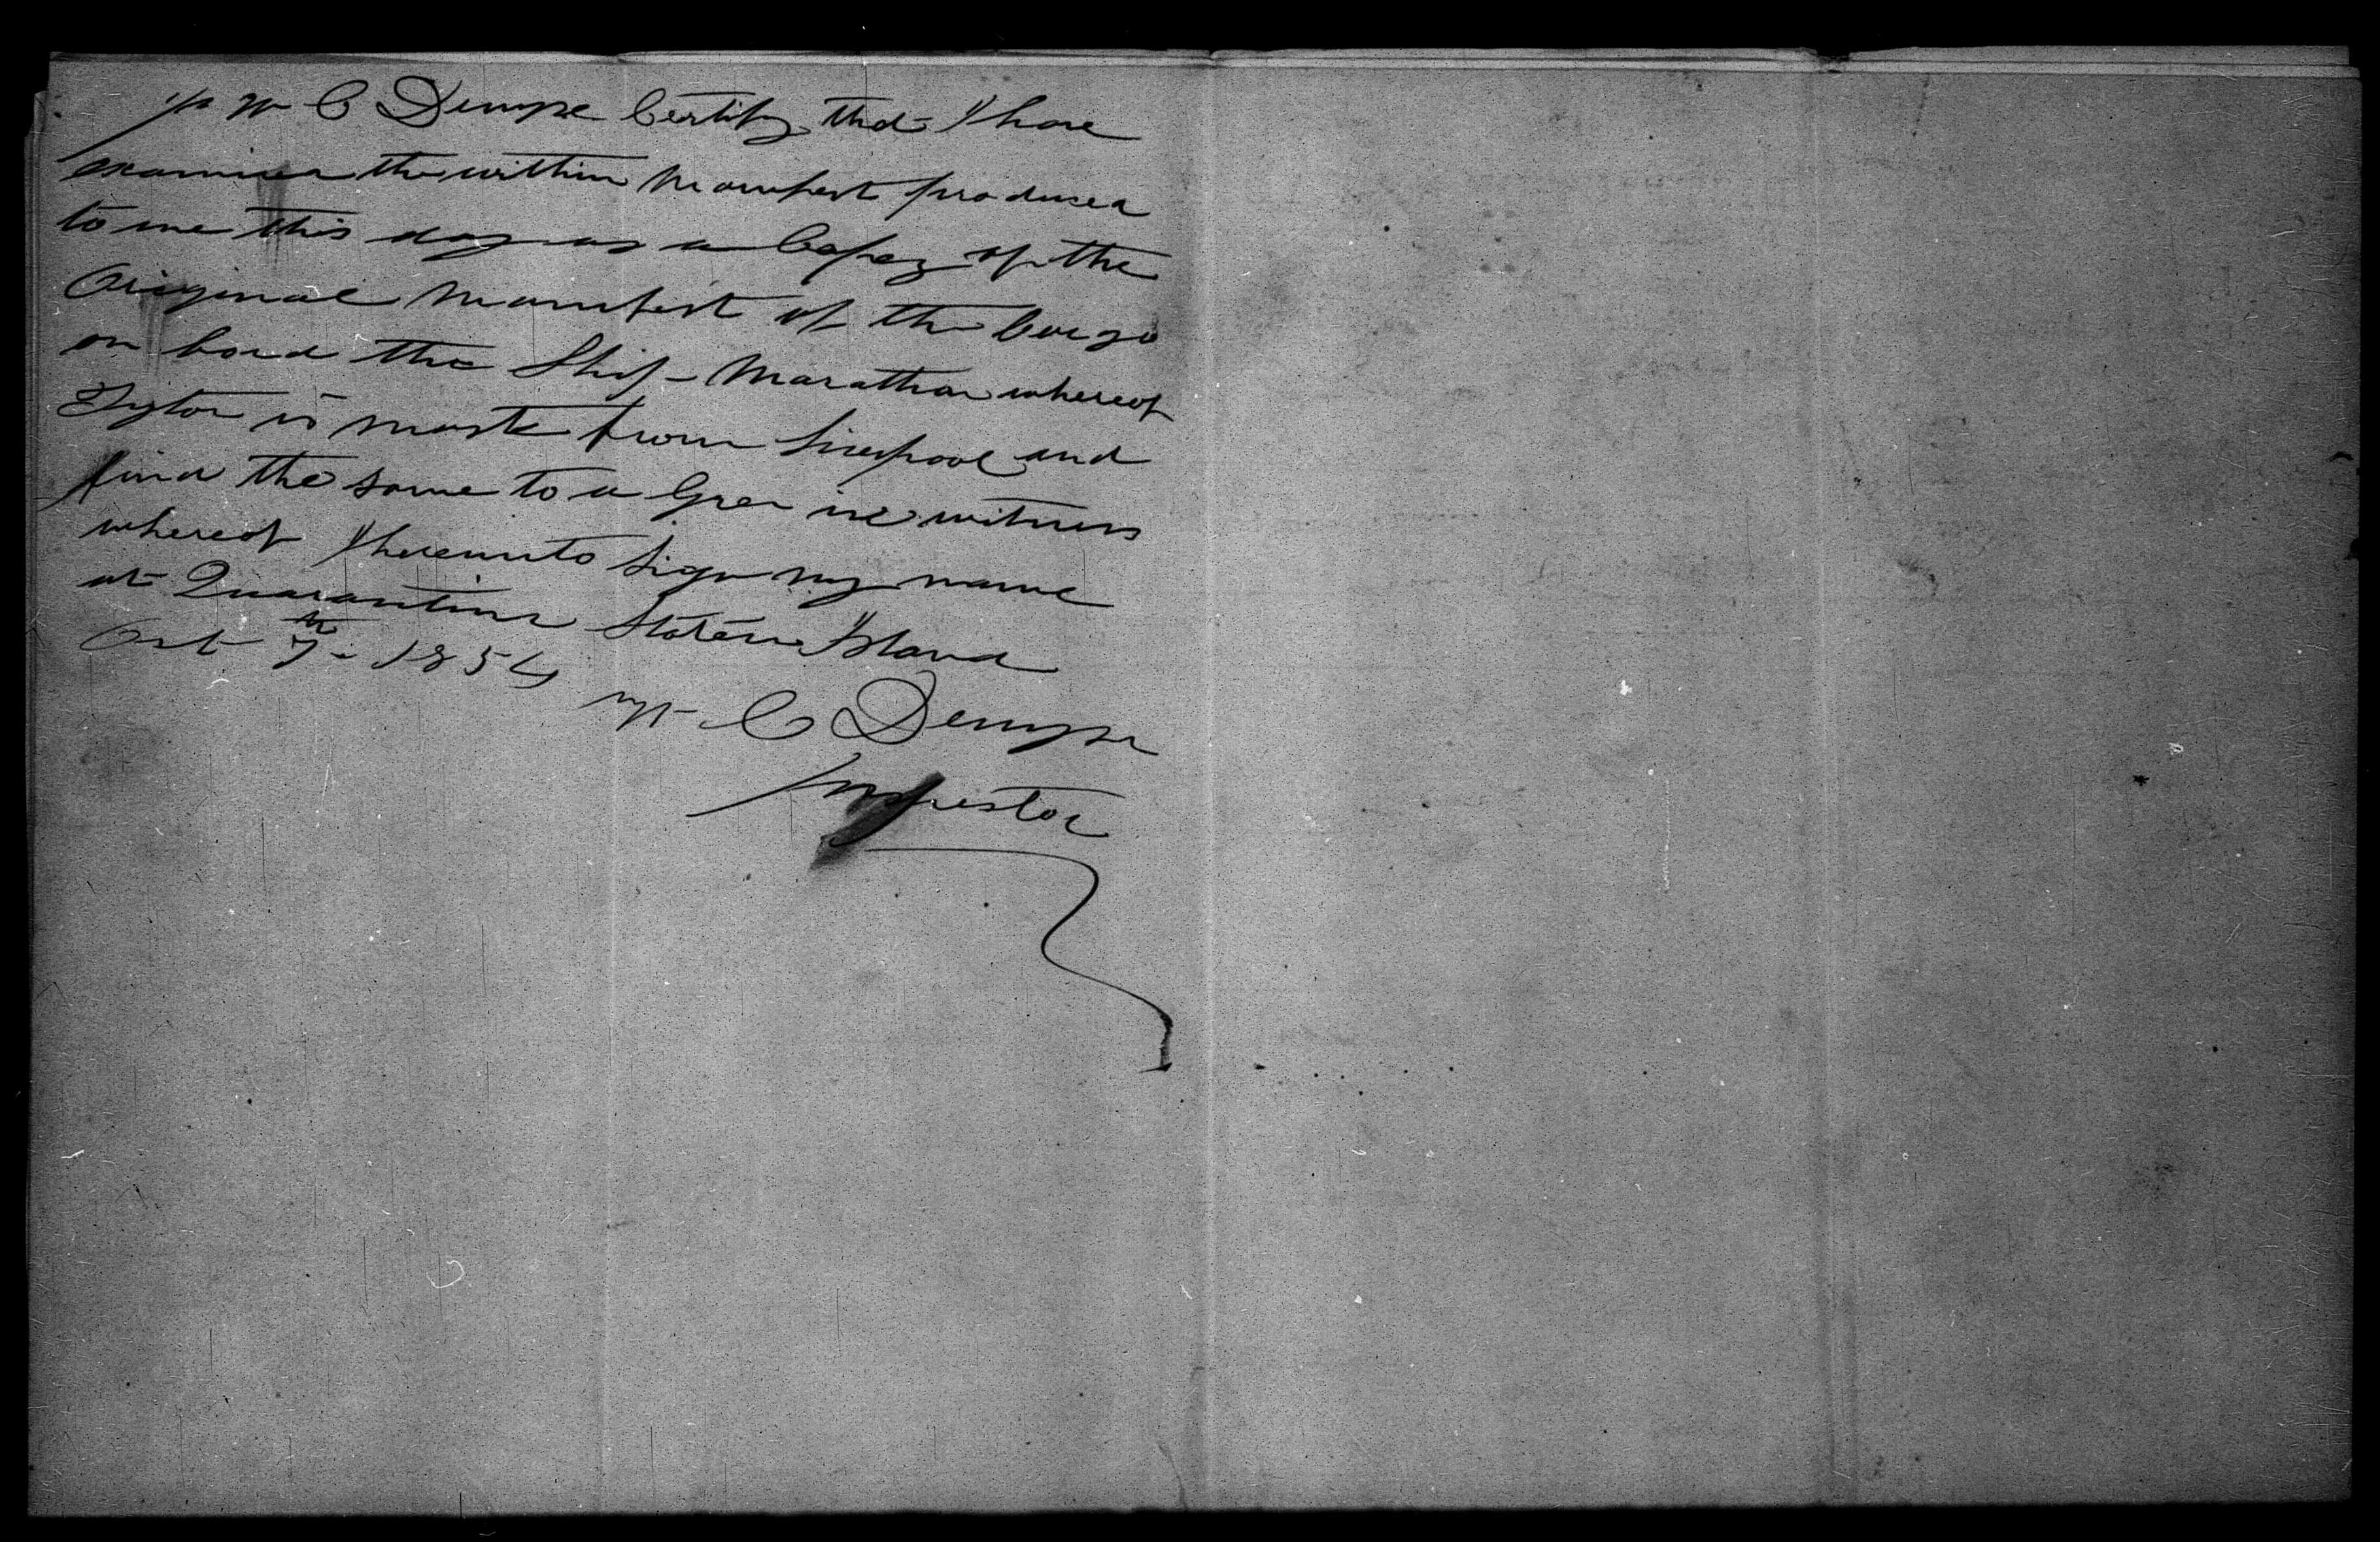 I Wm C Dempse Certify that I have
examined the within Manifest produced
to me this day as a Copey of the
Original Manifest of the Cargo
on board the Ship - Marathon whereof
Tyler is mast from Liverpool and
find the same to a Gree in witness
whereof I hereunto sign my name
at Quarantine Staten Island
Oct 7th 1854
Wm C Dempse
Inspector